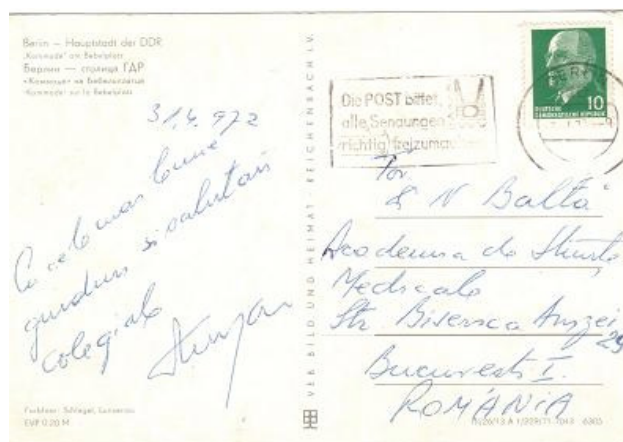 Berlin — Hauptstadt der DDR
„Kommode" am Bebelplatz
Берлин — столица ГДР
«Комоде» на Бебельплатце
«Kommode» sur la Bebelplatz
Cu cele mai bune
gânduri si salutări
colegiale
VEB BILD UND HEIMAT REICHENBACH I. V.
Die POST bittet,
alle Sendungen
richtig freizumachen
BERLIN
10
DEUTSCHE
DEMOKRATISCHE REPUBLIK
Tov.
N Baltă
Academia de Stiinte
Medicale
Str Biserica Amzei 29
Bucuresti I.
ROMÂNIA
Farbfoto: Schlegel,
EVP 0.20 M